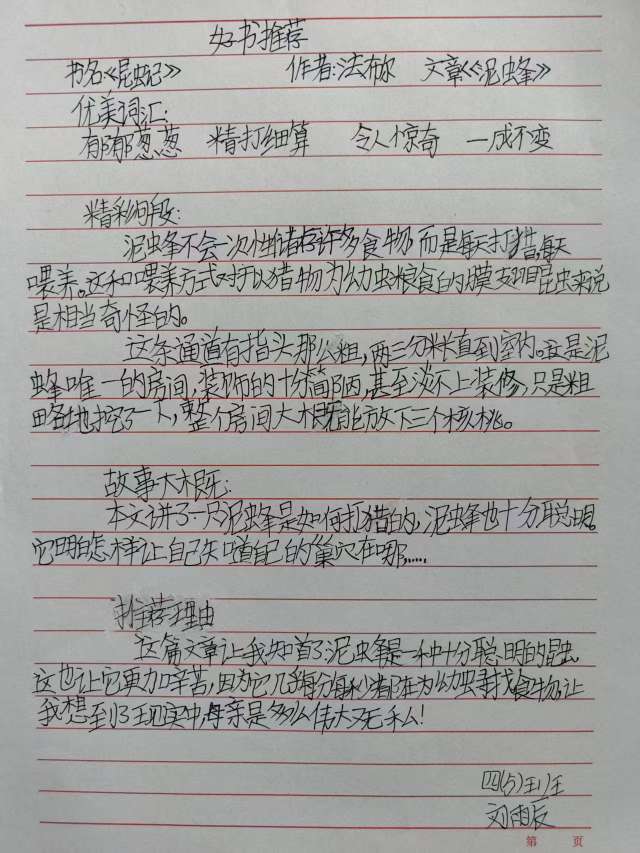 好书推荐
书名《昆虫记》 作者:法布尔 文章《泥蜂》
优美词汇:
郁郁葱葱 精打细算 令人惊奇 一成不变
精彩片段:
泥蜂不会一次性储存许多食物,而是每天打猎,每天
喂养。这种喂养方式对于以猎物为幼虫粮食的膜翅目昆虫来说
是相当奇怪的。
这条通道有指头那么粗,两三分米长直到室内。这是泥
蜂唯一的房间,装饰的十分简陋,甚至谈不上装修,只是粗
略地挖了一下,整个房间大概能放下三个核桃。
故事大概:
本文讲了一只泥蜂是如何打猎的,泥蜂也十分聪明。
它明白怎样让自己知道自己的巢穴在哪……
推荐理由
这篇文章让我知道了泥蜂是一种十分聪明的昆虫。
这也让它更加辛苦,因为它几乎每分每秒都在为幼虫寻找食物,让
我想到了现实中,母亲是多么伟大无私!
四(5)班
刘雨辰
第 页